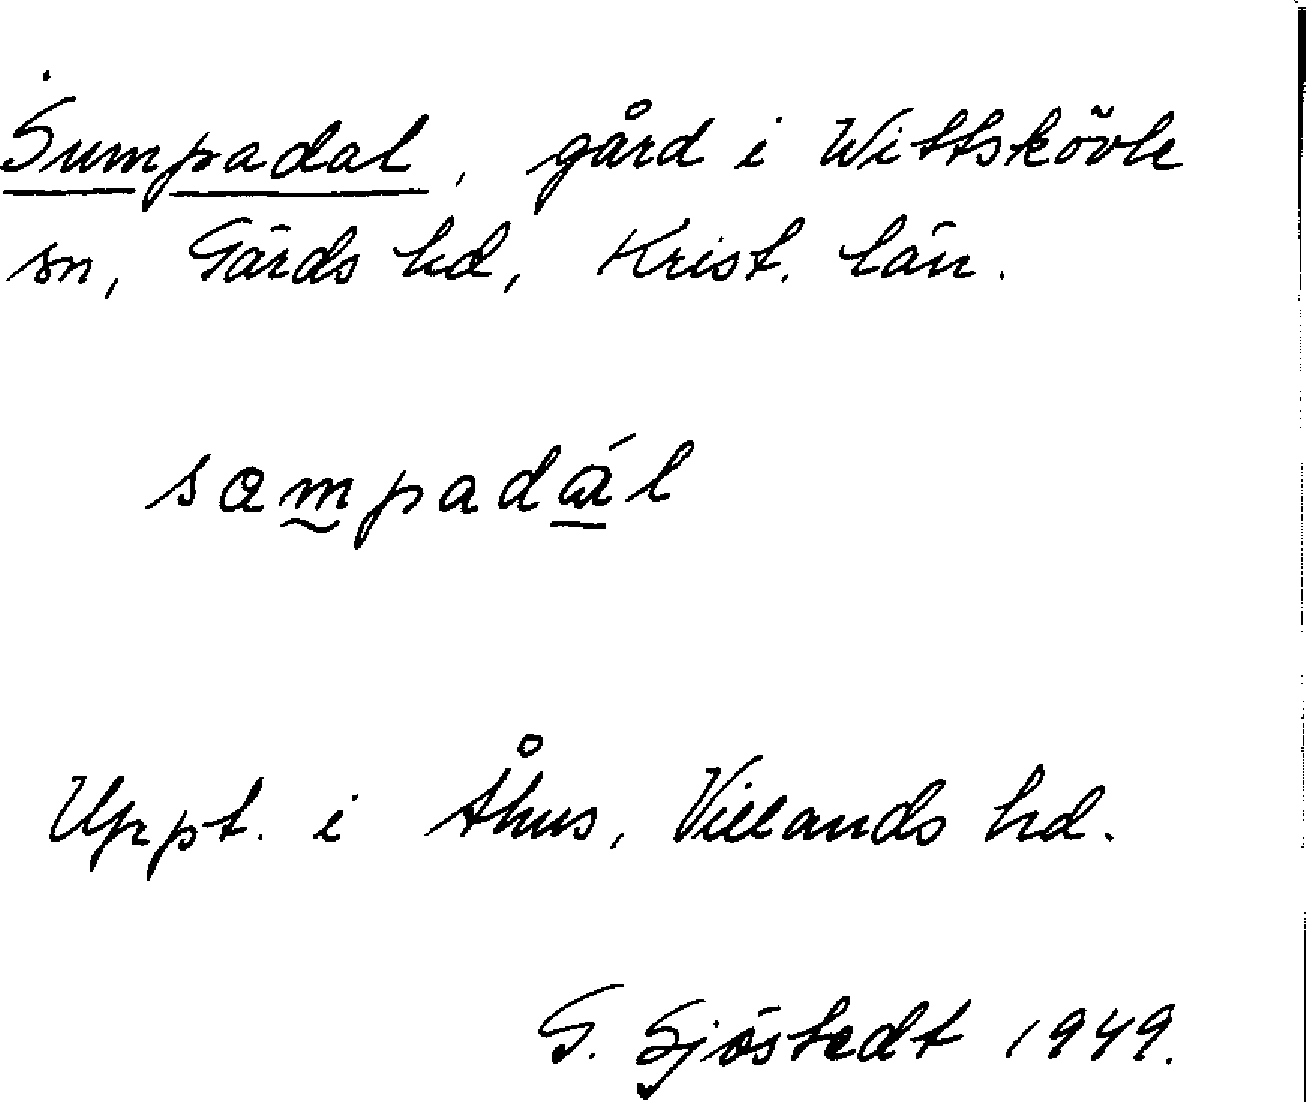 Sumpadal, gård i Wittskövle
sn, Gärds hd, Krist. län.
sampadál
Uppt. i Åhus, Villands hd.
G. Sjöstedt 1949.